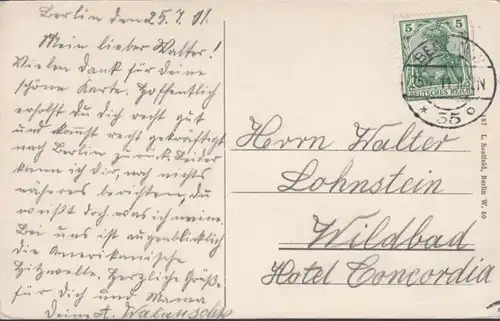 Berlin den 25.7.11.
Mein lieber Walter!
Vielen Dank für Deine
schöne Karte. Hoffentlich
erholst Du dich recht gut
und kommst recht gekräftigt
nach Berlin zurück. Leider
kann ich dir noch nichts
näheres berichten, du
weißt doch was ich meine.
Bei uns ist augenblicklich
die Amerikanische
Hitzwelle. Herzliche Grüße
für Dich und Mama
Deine A.
5 5
DEUTSCHES REICH
* 55 °
Herrn Walter
Lohnstein
Wildbad
Hotel Concordia
L. Saalfeld, Berlin W. 50